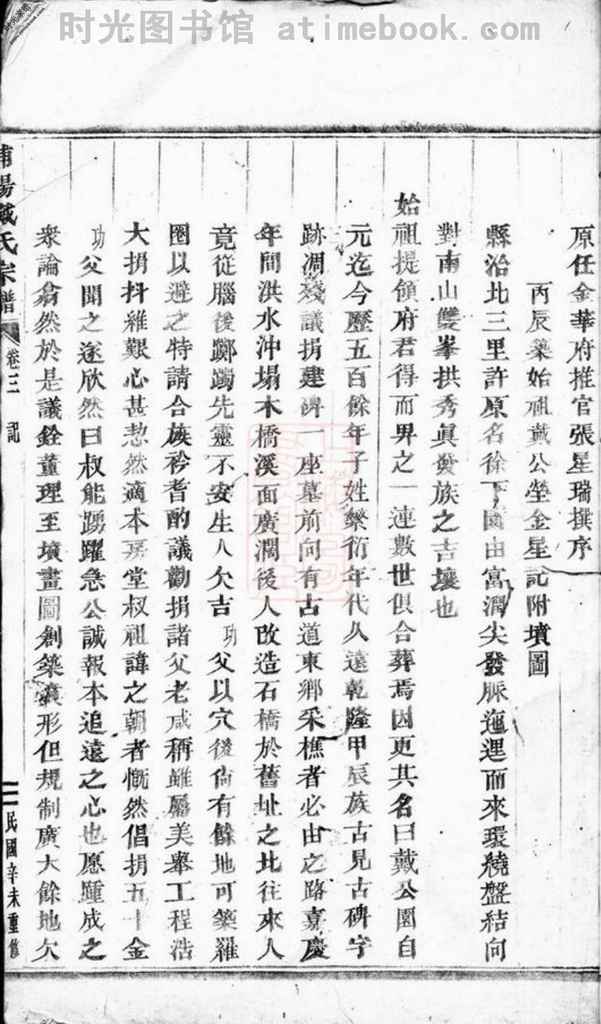 时光图书馆 atimebook.com
原任金華府推官張星瑞撰序
丙辰築始祖戴公塋金星記附墳圖
縣治北三里許原名徐下園由富澗尖發脈迤邐而來環繞盤結向
對南山雙峯拱秀眞發族之吉壤也
始祖提領府君得而畀之一連數世俱合葬焉因更其名曰戴公園自
元迄今歷五百餘年子姓樂衍年代久遠乾隆甲辰族古見古碑字
跡凋殘議捐建碑一座墓前向有古道東鄉采樵者必由之路嘉慶
年間洪水沖塌木橋溪面廣濶後人改造石橋於舊址之北往來人
竟從腦後躑躅先靈不安生人欠吉功父以穴後尙有餘地可築羅
圈以避之特請合族衿耆酌議勸捐諸父老咸稱雖屬美舉工程浩
大捐抖維艱心甚愸然適本房堂叔祖諱之朝者慨然倡捐五十金
功父聞之遂欣然曰叔能踴躍急公誠報本追遠之心也愿踵成之
衆論翕然於是議銓董理至墳畫圖創築冀形但規制廣大餘地欠
浦陽戴氏宗譜 卷三 記
二 民國辛未重修